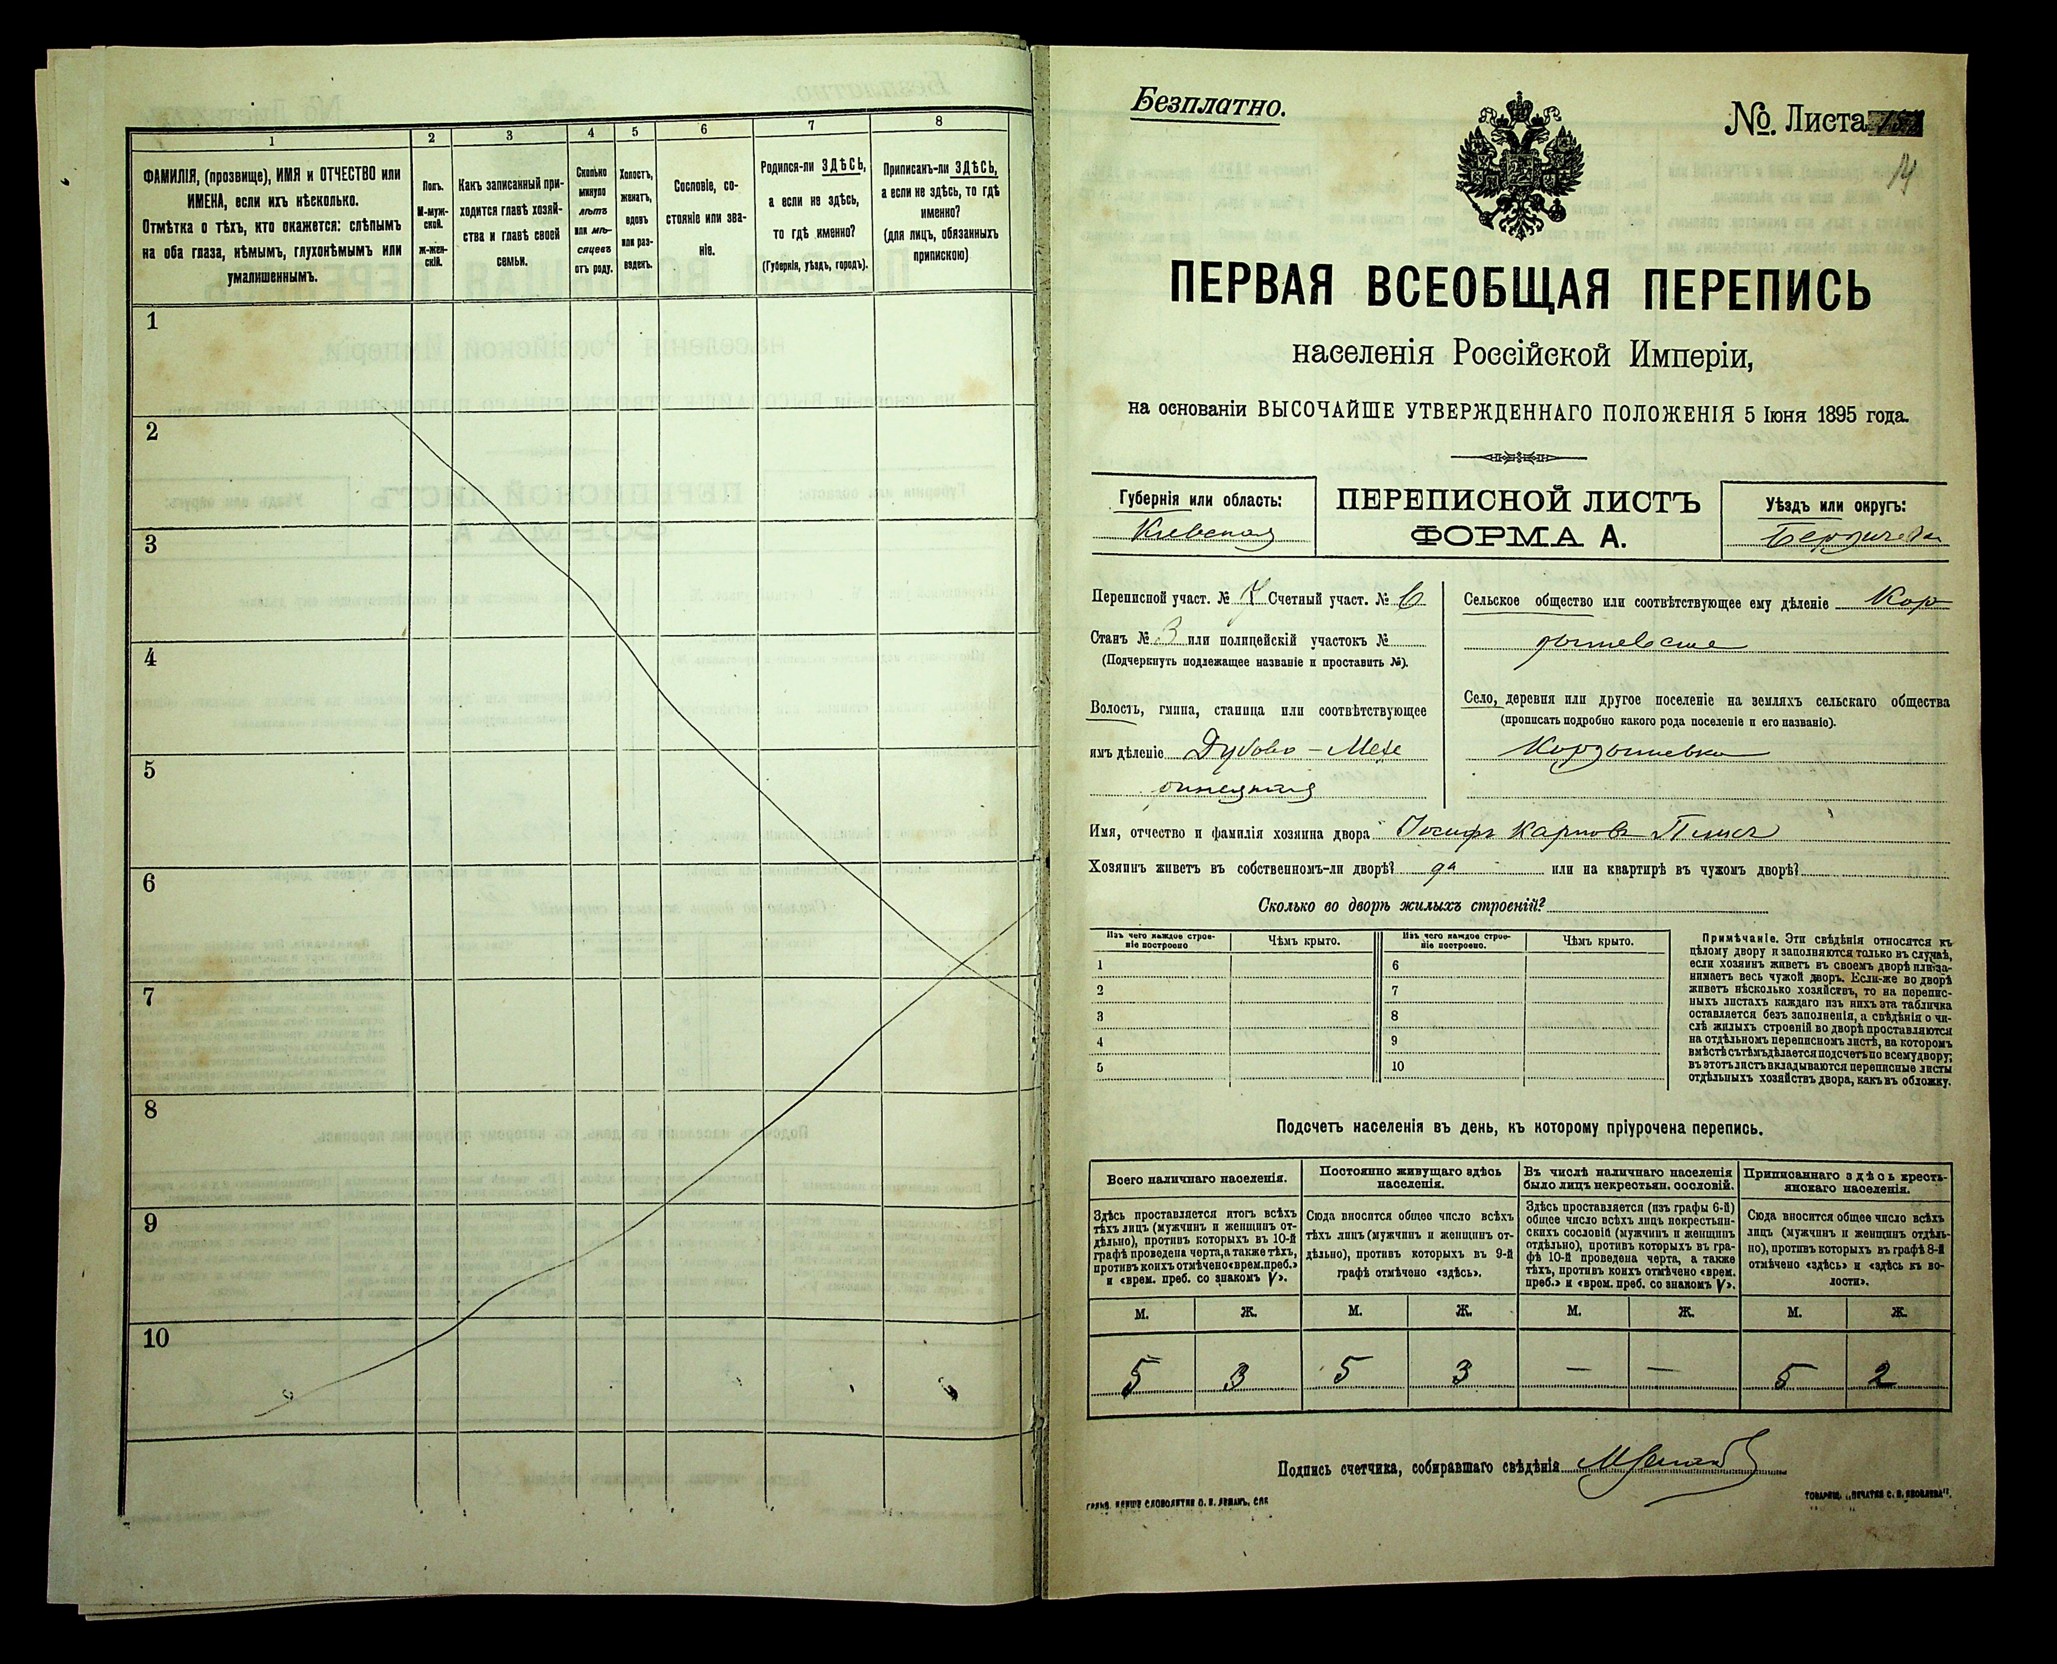 1
2
3
4
5
6
7
8
ФАМИЛІЯ, (прозвище), ИМЯ и ОТЧЕСТВО или
ИМЕНА, если ихъ нѣсколько.
Отмѣтка о тѣхъ, кто окажется: слѣпымъ
на оба глаза, нѣмымъ, глухонѣмымъ или
умалишеннымъ.
Полъ.
М-муж-
ской.
ж-жен-
скій.
Какъ записанный при-
ходится главѣ хозяй-
ства и главѣ своей
семьи.
Сколько
минуло
лѣтъ
или мѣ-
сяцевъ
отъ роду.
Холостъ,
женатъ,
вдовъ
или раз-
веденъ.
Сословіе, со-
стояніе или зва-
ніе.
Родился-ли ЗДѢСЬ,
а если не здѣсь,
то гдѣ именно?
(Губернія, уѣздъ, городъ).
Приписанъ-ли ЗДѢСЬ,
а если не здѣсь, то гдѣ
именно?
(для лицъ, обязанныхъ
припискою)
1
2
3
4
5
6
7
8
9
10
Безплатно.
№. Листа
14
ПЕРВАЯ ВСЕОБЩАЯ ПЕРЕПИСЬ
населенія Россійской Имперіи,
на основаніи ВЫСОЧАЙШЕ УТВЕРЖДЕННАГО ПОЛОЖЕНІЯ 5 Іюня 1895 года.
Губернія или область:
Кіевская
ПЕРЕПИСНОЙ ЛИСТЪ
ФОРМА А.
Уѣздъ или округъ:
Переписной участ. № 7 Счетный участ. № 6
Станъ № 3 или полицейскій участокъ №
(Подчеркнуть подлежащее названіе и проставить №).
Волость, гмина, станица или соотвѣтствующее
имъ дѣленіе Дубово-Меже
Сельское общество или соотвѣтствующее ему дѣленіе Кор
дышевское
Село, деревня или другое поселеніе на земляхъ сельскаго общества
(прописать подробно какого рода поселеніе и его названіе).
Кордышевка
Имя, отчество и фамилія хозяина двора Іосифъ Карповъ
Хозяинъ живетъ въ собственномъ-ли дворѣ? да или на квартирѣ въ чужомъ дворѣ?
Сколько во дворѣ жилыхъ строеній?
Изъ чего каждое строе-
ніе построено
Чѣмъ крыто.
Изъ чего каждое строе-
ніе построено.
Чѣмъ крыто.
1
2
3
4
5
6
7
8
9
10
Примѣчаніе. Эти свѣдѣнія относятся къ
цѣлому двору и заполняются только въ случаѣ,
если хозяинъ живетъ въ своемъ дворѣ или за-
нимаетъ весь чужой дворъ. Если-же во дворѣ
живетъ нѣсколько хозяйствъ, то на перепис-
ныхъ листахъ каждаго изъ нихъ эта табличка
оставляется безъ заполненія, а свѣдѣнія о чи-
слѣ жилыхъ строеній во дворѣ проставляются
на отдѣльномъ переписномъ листѣ, на которомъ
вмѣстѣ съ тѣмъ дѣлается подсчетъ по всему двору;
въ этотъ листъ вкладываются переписные листы
отдѣльныхъ хозяйствъ двора, какъ въ обложку.
Подсчетъ населенія въ день, къ которому пріурочена перепись.
Всего наличнаго населенія.
Здѣсь проставляется итогъ всѣхъ
тѣхъ лицъ (мужчинъ и женщинъ от-
дѣльно), противъ которыхъ въ 10-й
графѣ проведена черта, а также тѣхъ,
противъ коихъ отмѣчено «врем. преб.»
и «врем. преб. со знакомъ V».
Постоянно живущаго здѣсь
населенія.
Сюда вносится общее число всѣхъ
тѣхъ лицъ (мужчинъ и женщинъ от-
дѣльно), противъ которыхъ въ 9-й
графѣ отмѣчено «здѣсь».
Въ числѣ наличнаго населенія
было лицъ некрестьян. сословій.
Здѣсь проставляется (изъ графы 6-й)
общее число всѣхъ лицъ некрестьян-
скихъ сословій (мужчинъ и женщинъ
отдѣльно), противъ которыхъ въ гра-
фѣ 10-й проведена черта, а также
тѣхъ, противъ коихъ отмѣчено «врем.
преб.» и «врем. преб. со знакомъ V».
Приписаннаго здѣсь кресть-
янскаго населенія.
Сюда вносится общее число всѣхъ
лицъ (мужчинъ и женщинъ отдѣль-
но), противъ которыхъ въ графѣ 8-й
отмѣчено «здѣсь» и «здѣсь къ во-
лости».
М. Ж. М. Ж. М. Ж. М. Ж.
5 3 5 3 — — 5 2
Подпись счетчика, собиравшаго свѣдѣнія
ТОВАРИЩ. „ПЕЧАТНЯ С. П. ЯКОВЛЕВА“.